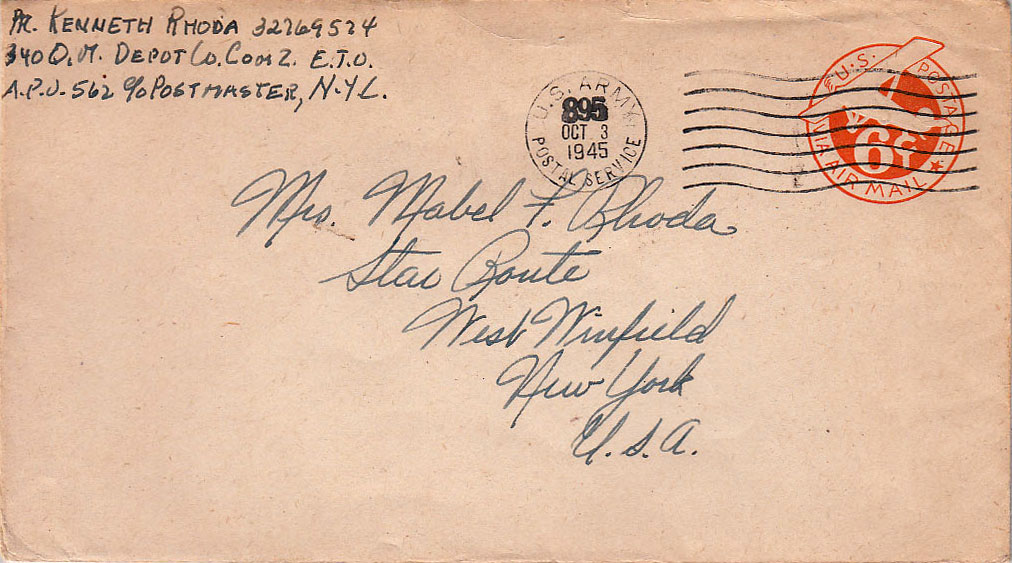 Pvt. KENNETH RHODA 32269524
340 Q.M. DEPOT Co. ComZ. E.T.O.
A.P.O. 562 c/o POSTMASTER, N.Y.C.
U.S. ARMY
895
OCT 3
1945
POSTAL SERVICE
U.S. POSTAGE
6¢
VIA AIR MAIL
Mrs. Mabel F. Rhoda
Star Route
West Winfield
New York
U.S.A.